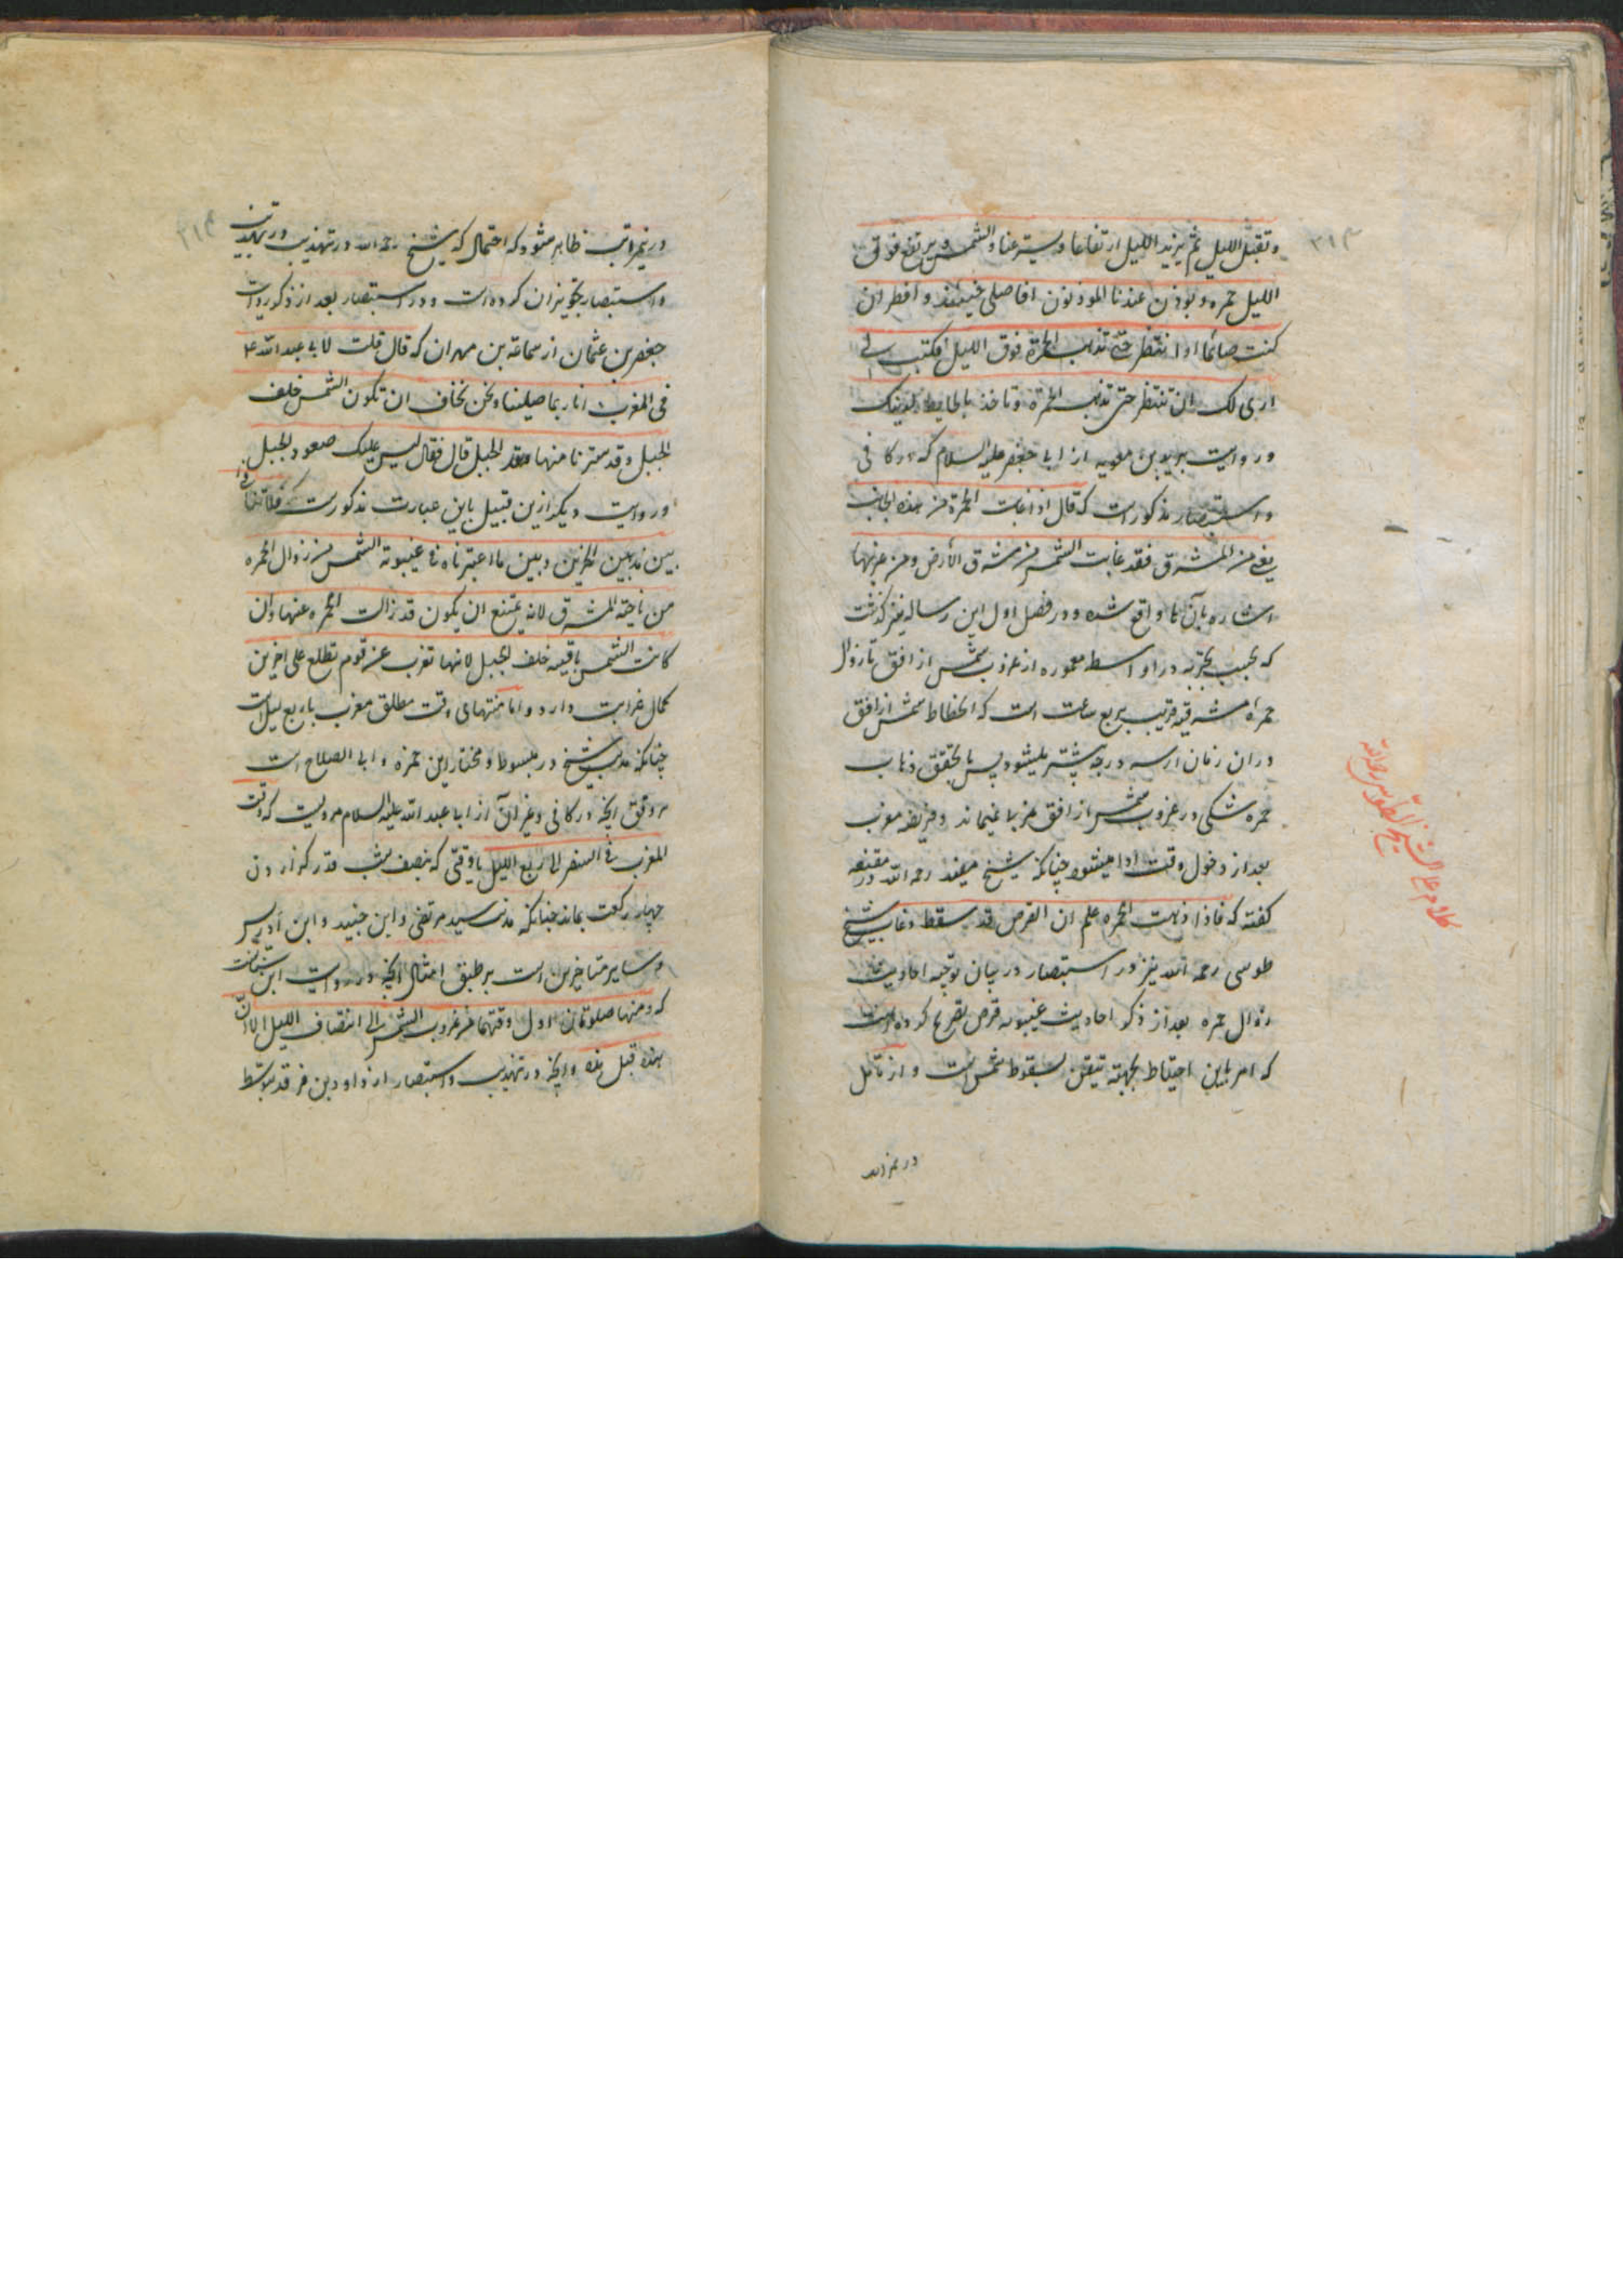 ۳۱۳
وتقبل الليل ثم يزيد الليل ارتفاعا ويستر عنا الشمس ويرتفع فوق
الليل حمره ويوذن عندنا الموذنون افاصلى حينئذ وافطر ان
كنت صائما او انتظر حتى تذهب الحمرة فوق الليل فكتب الى
ارى لك ان تنتظر حتى تذهب الحمرة وتاخذ بالحايطه لدينك
ودر روايت بريد بن معويه از ابى جعفر عليه السلام كه در كافى
واستبصار مذكور است كه قال اذا غابت الحمرة من هذه الجانب
يعنى من المشرق فقد غابت الشمس من شرق الأرض ومن غربها
اشاره بآن واقع شده ودر فصل اول اين رساله نيز گذشت
كه بحسب تجربه در اواسط معموره از غروب شمس از افق تا زوال
حمرهٔ مشرقيه قريب بربع ساعت است كه انحطاط شمس از افق
در ان زمان از سه درجه بيشتر ميشود پس با تحقق ذهاب
حمره شكى در غروب شمس از افق غربا نميماند وفريضه مغرب
بعد از دخول وقت ادا ميشود چنانكه شيخ مفيد رحمه الله در مقنعه
گفته كه فاذا ذهبت الحمره علم ان القرص قد سقط وغاب وشيخ
طوسى رحمه الله نيز در استبصار در بيان توجيه احاديث
زوال حمره بعد از ذكر احاديث غيبوبه قرص تصريح كرده است
كه امر باين احتياط بجهته تيقن سقوط شمس است واز تامل
در مراتب
كلام على الشيخ الطوسى رحمه الله
۳۱۴
در مراتب ظاهر ميشود كه احتمال كه شيخ رحمه الله در تهذيب
واستبصار تجويز ان كرده است ودر استبصار بعد از ذكر روايت
جعفر بن عثمان از سماعة بن مهران كه قال قلت لابى عبد الله ع
فى المغرب انا ربما صلينا ونحن نخاف ان تكون الشمس خلف
الجبل وقد سترنا منها الجبل قال فقال ليس عليك صعود الجبل
ودر روايت ديگر ازين قبيل باين عبارت مذكور است كه فلا تنافى
بين هذين الخبرين وبين ما اعتبرناه فى غيبوبة الشمس من زوال الحمره
من ناحية المشرق لانه يمتنع ان يكون قد زالت الحمره عنها وان
كانت الشمس باقيه خلف الجبل لانها تغرب عن قوم تطلع على اخرين
كمال غرابت دارد واما منتهاى وقت مطلق مغرب يا ربع ليل است
چنانكه مذهب شيخ در مبسوط ومختار ابن حمزه وابى الصلاح است
بر وفق انچه در كافى وغير آن از ابا عبد الله عليه السلام مرويست كه وقت
المغرب فى السفر الى ربع الليل يا وقتى كه بنصف شب قدر گزاردن
چهار ركعت بماند چنانكه مذهب سيد مرتضى وابن جنيد وابن ادريس
وساير متاخرين است بر طبق امثال انچه در روايت ابن
كه ومنها صلوتان اول وقتهما من غروب الشمس الى انتصاف الليل الا ان
هذه قبل هذه وانچه در تهذيب واستبصار از داود بن فرقد بتوسط